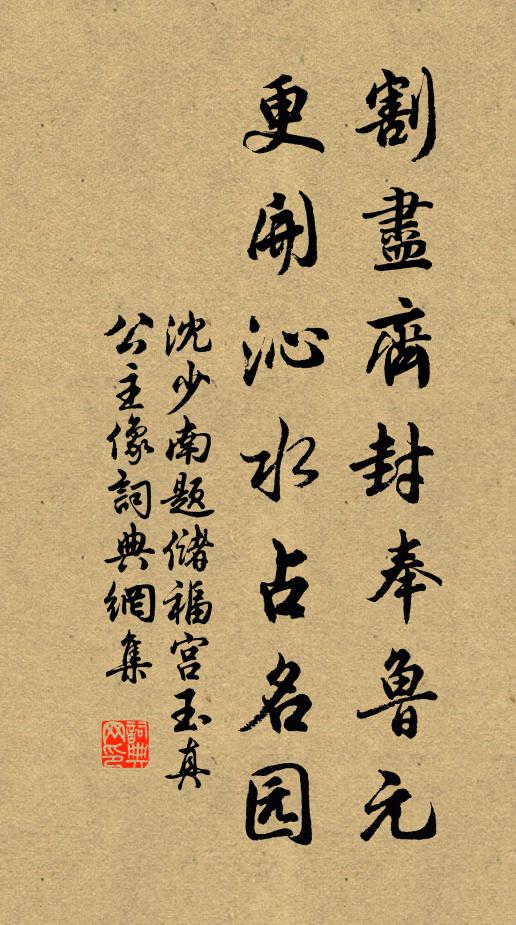 割盡齊封奉魯元
更開沁水占名园
沈少南题儲福宫玉真
公主像詞典網集
詞典网印